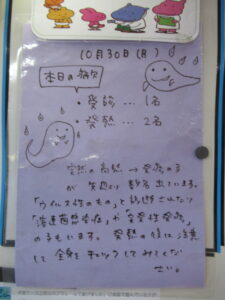 10月30日(月)
本日の病欠
・発疹 … 1名
・発熱 … 2名
突然の高熱 → 発疹の子
が 数名出ています。
「ウイルス性のもの」と診断されたり
「溶連菌感染症」や「突発性発疹」
の子もいます。発熱の後に注意
して 全身を チェックしてみてくだ
さい。